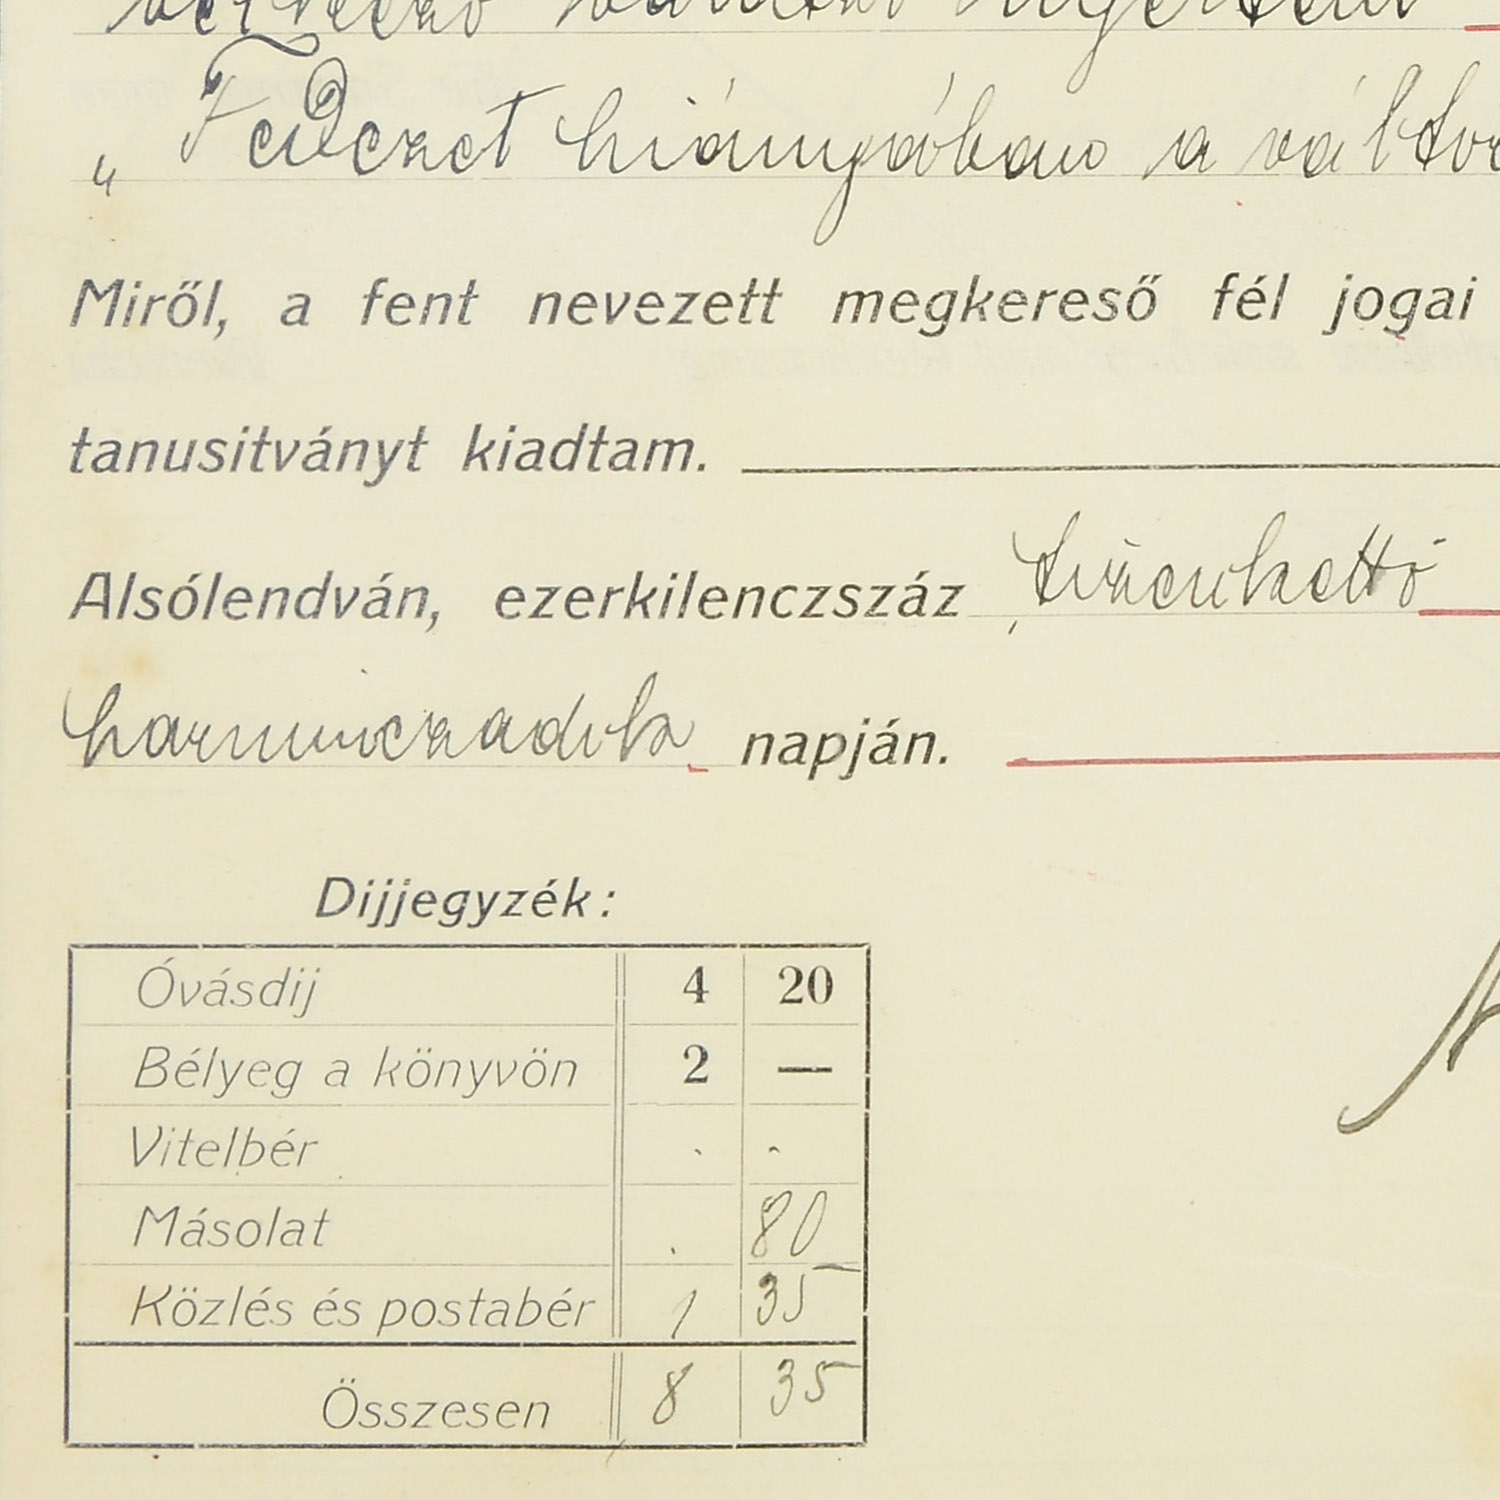 „Fedezet hiányában a vál
Miről, a fent nevezett megkereső fél jogai
tanusitványt kiadtam.
Alsólendván, ezerkilenczszáz tizenkettő
harminczadik napján.
Dijjegyzék:
Óvásdij 4 20
Bélyeg a könyvön 2 —
Vitelbér . -
Másolat . 80
Közlés és postabér 1 35
Összesen 8 35